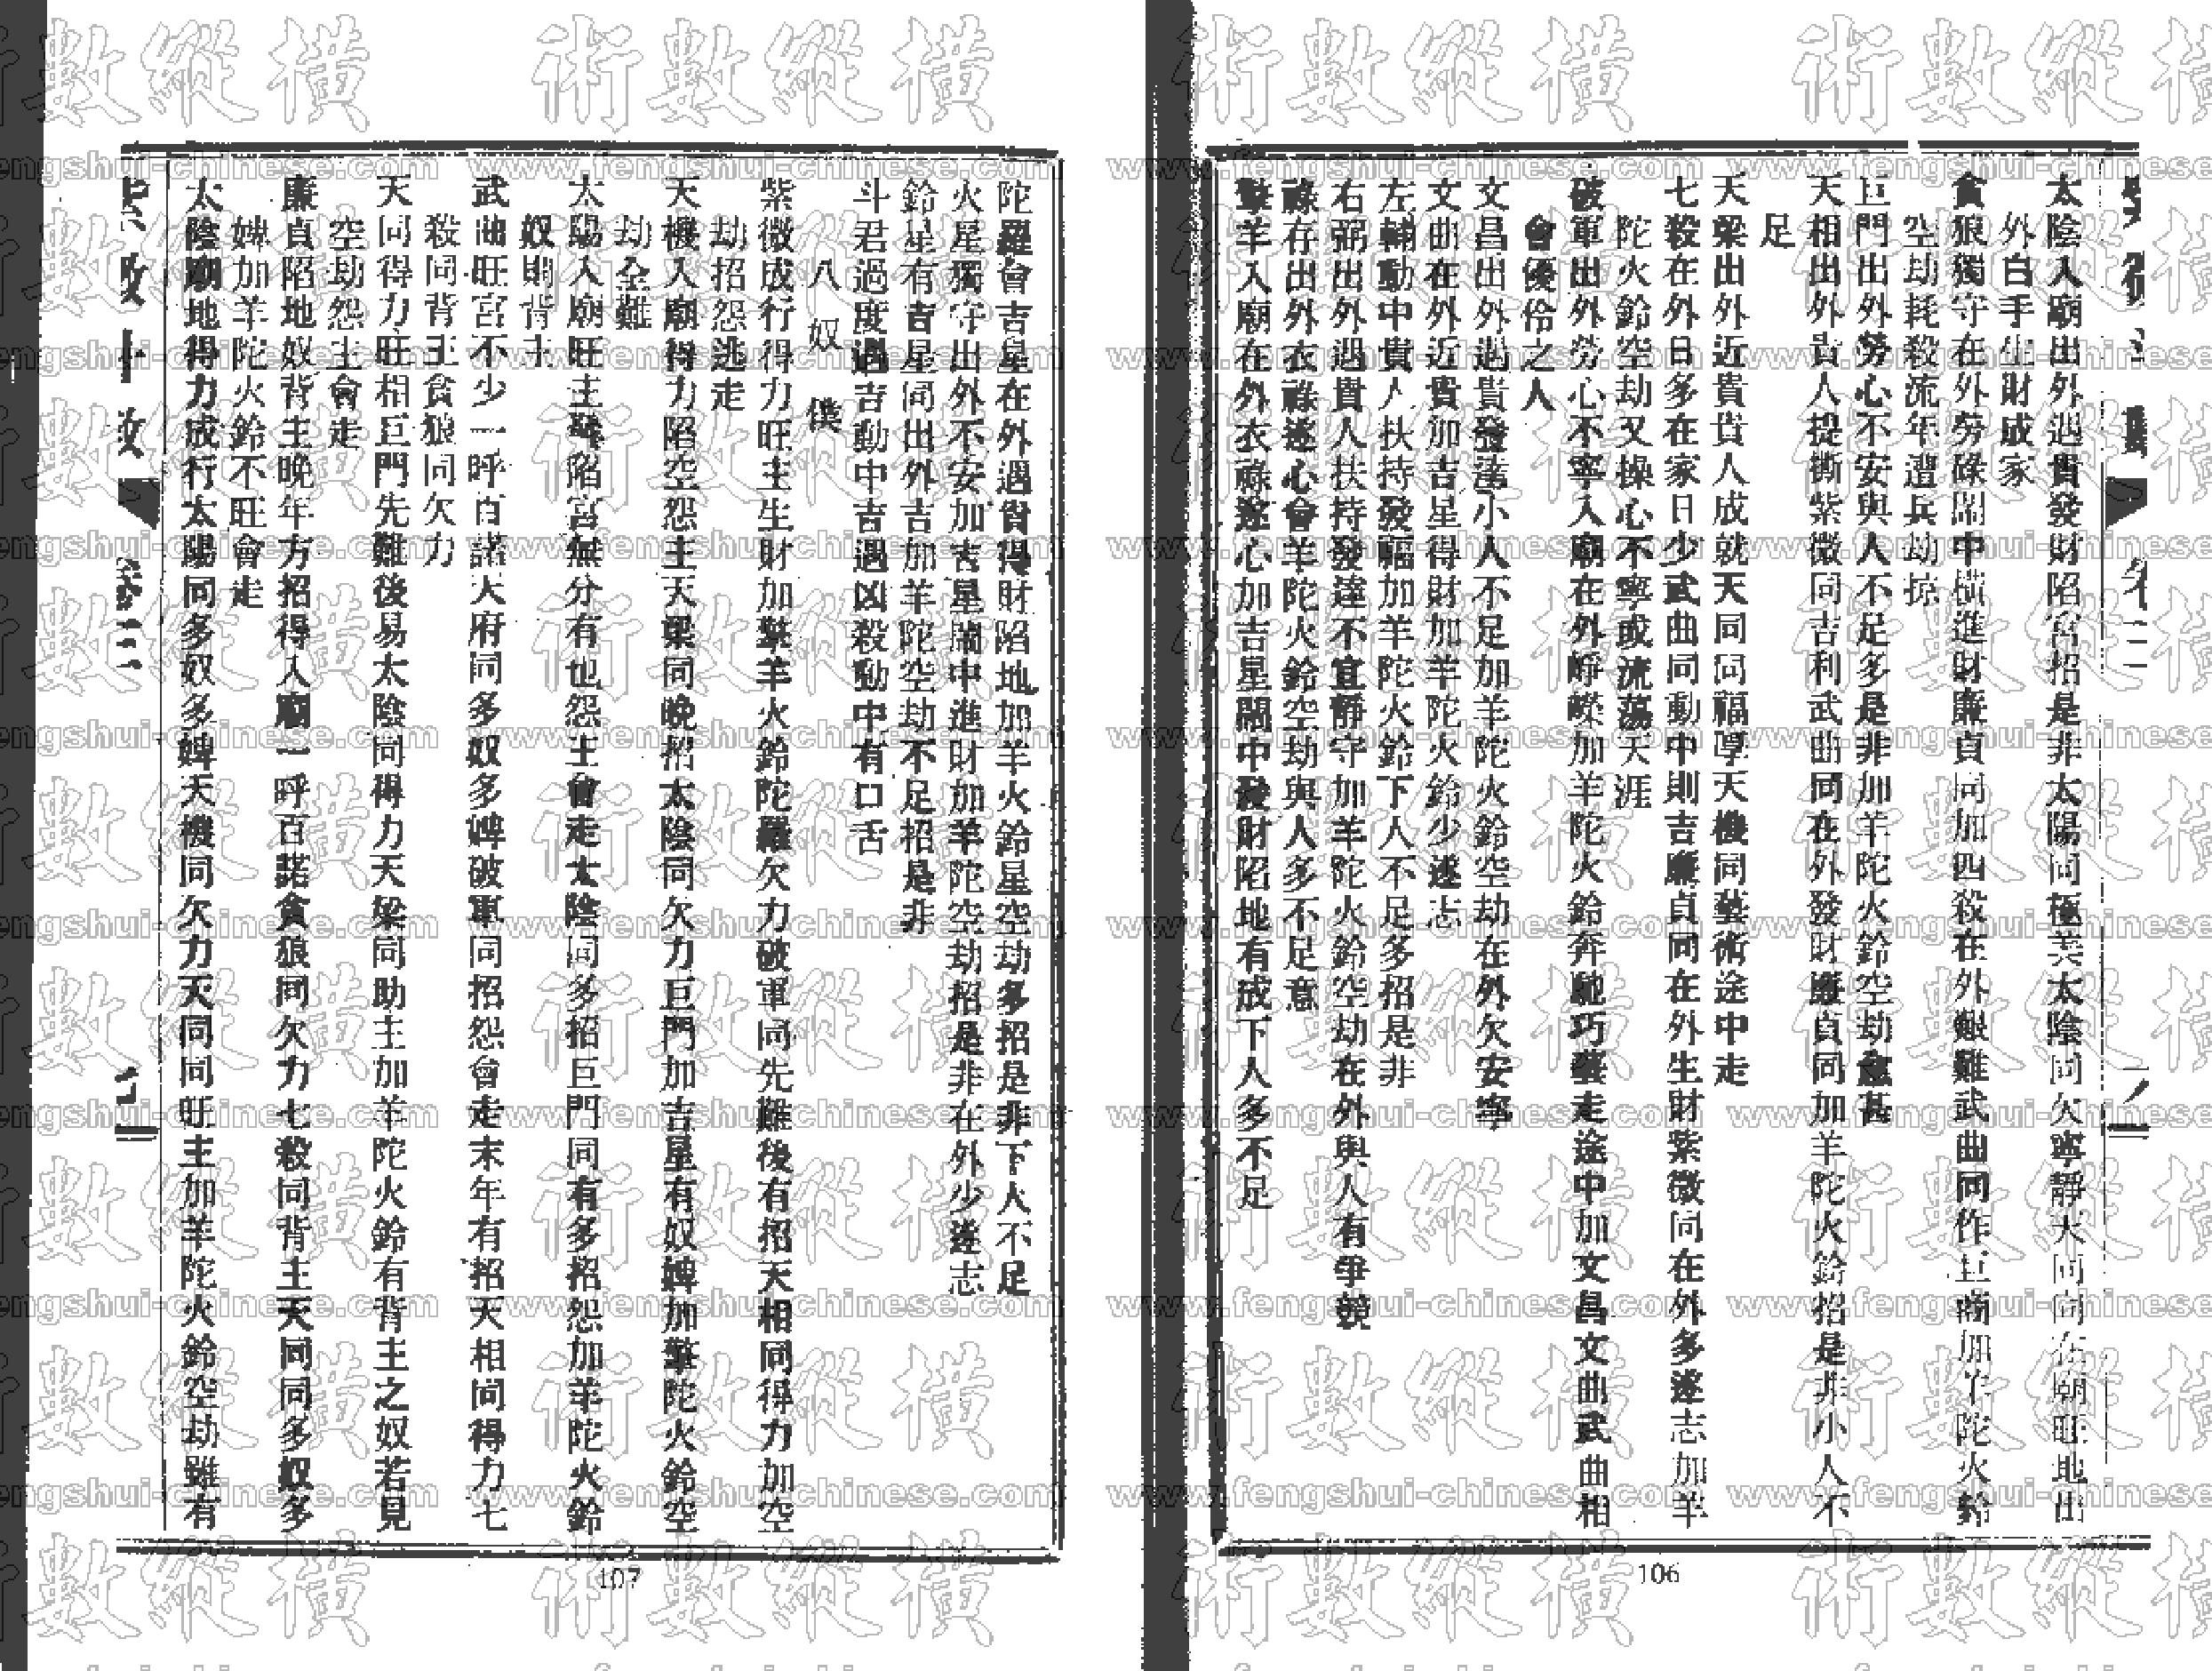 太陰入廟出外遇貴發財陷宮招是非太陽同極美太陰同欠寧靜天同同在廟旺地出
外白手生財成家
貪狼獨守在外勞碌鬧中橫進財廉貞同加四殺在外艱難武曲同作巨商加羊陀火鈴
空劫耗殺流年遭兵劫掠
巨門出外勞心不安與人不足多是非加羊陀火鈴空劫愈甚
天相出外貴人提攜紫微同吉利武曲同在外發財廉貞同加羊陀火鈴招是非小人不
足
天梁出外近貴貴人成就天同同福厚天機同藝術途中走
七殺在外日多在家日少武曲同動中則吉廉貞同在外生財紫微同在外多遂志加羊
陀火鈴空劫又操心不寧或流蕩天涯
破軍出外勞心不寧入廟在外崢嶸加羊陀火鈴奔馳巧藝走途中加文昌文曲武曲相
會優伶之人
文昌出外遇貴發達小人不足加羊陀火鈴空劫在外欠安寧
文曲在外近貴加吉星得財加羊陀火鈴少遂志
左輔動中貴人扶持發福加羊陀火鈴下人不足多招是非
右弼出外遇貴人扶持發達不宜靜守加羊陀火鈴空劫在外與人有爭競
祿存出外衣祿遂心會羊陀火鈴空劫與人多不足意
擎羊入廟在外衣祿遂心加吉星鬧中發財陷地有成下人多不足
卷三
106
陀羅會吉星在外遇貴得財陷地加羊火鈴星空劫多招是非下人不足
火星獨守出外不安加吉星鬧中進財加羊陀空劫招是非在外少遂志
鈴星有吉星同出外吉加羊陀空劫不足招是非
斗君過度遇吉動中吉遇凶殺動中有口舌
八 奴 僕
紫微成行得力旺主生財加擎羊火鈴陀羅欠力破軍同先難後有招天相同得力加空
劫招怨逃走
天機入廟得力陷空怨主天梁同晚招太陰同欠力巨門加吉星有奴婢加擎陀火鈴空
劫全難
太陽入廟旺主發陷宮無分有也怨主會走太陰同多招巨門同有多招怨加羊陀火鈴
奴則背主
武曲旺宮不少一呼百諾天府同多奴多婢破軍同招怨會走末年有招天相同得力七
殺同背主貪狼同欠力
天同得力旺相巨門先難後易太陰同得力天梁同助主加羊陀火鈴有背主之奴若見
空劫怨主會走
廉貞陷地奴背主晚年方招得入廟一呼百諾貪狼同欠力七殺同背主天同同多奴多
婢加羊陀火鈴不旺會走
太陰廟地得力成行太陽同多奴多婢天機同欠力天同同旺主加羊陀火鈴空劫雖有
107
術數縱橫
www.fengshui-chinese.com